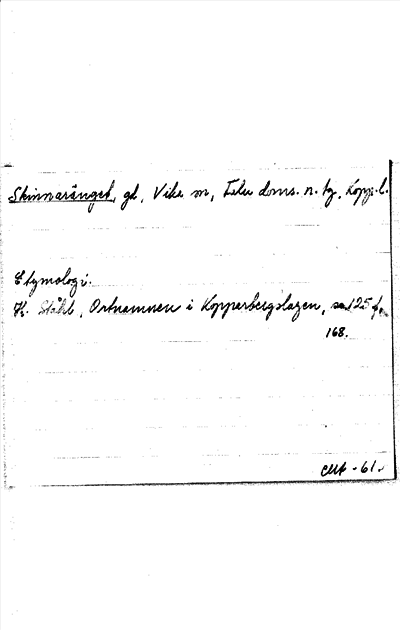 Skinnaränget, gd, Vika sn, Falu doms. n. tg, Kopp. l.
Etymologi:
H. Ståhl, Ortnamnen i Kopparbergslagen, s. 125 f,
168.
-61.